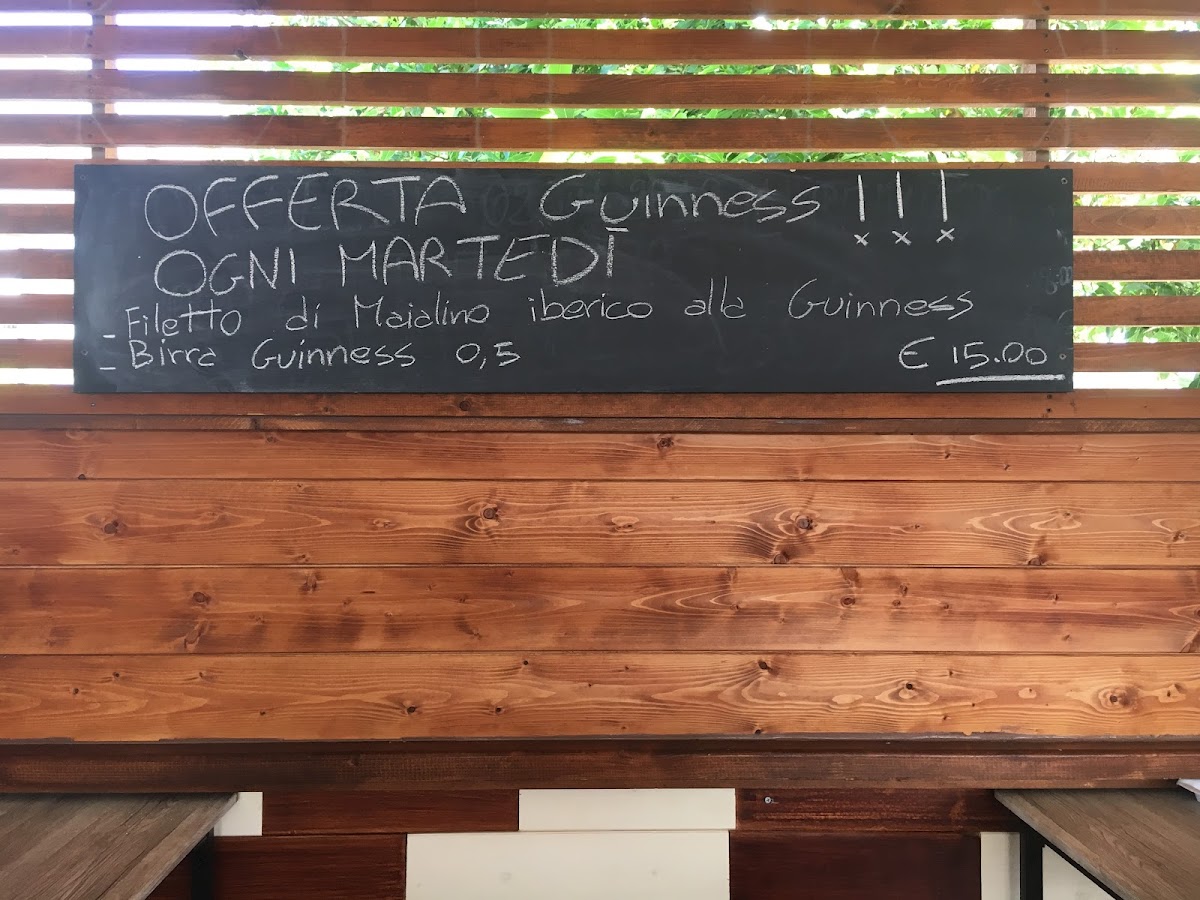 OFFERTA Guinness !!!
OGNI MARTEDÌ
- Filetto di Maialino iberico alla Guinness
- Birra Guinness 0,5 € 15.00